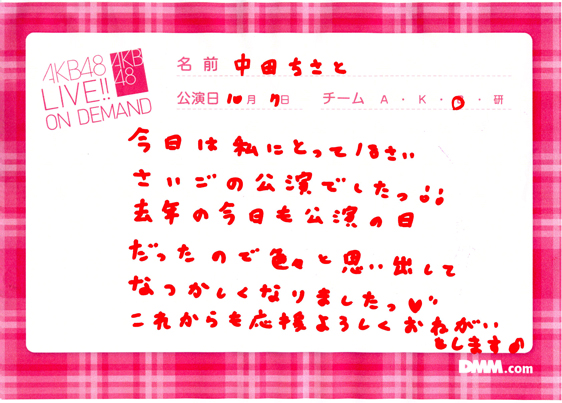 AKB48
LIVE!!
ON DEMAND
AKB
48
名前 中田ちさと
公演日 10月7日 チーム A・K・B・研
今日は私にとって18さい
さいごの公演でしたっ!!
去年の今日も公演の日
だったので色々と思い出して
なつかしくなりましたっ♥
これからも応援よろしくおねがい
をします♪
DMM.com